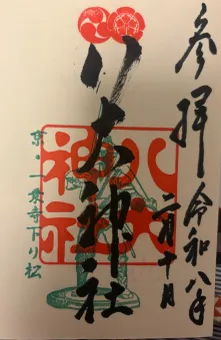 参拝 令和八年
二月十日
八大神社
八大神社
京・一乗寺下り松